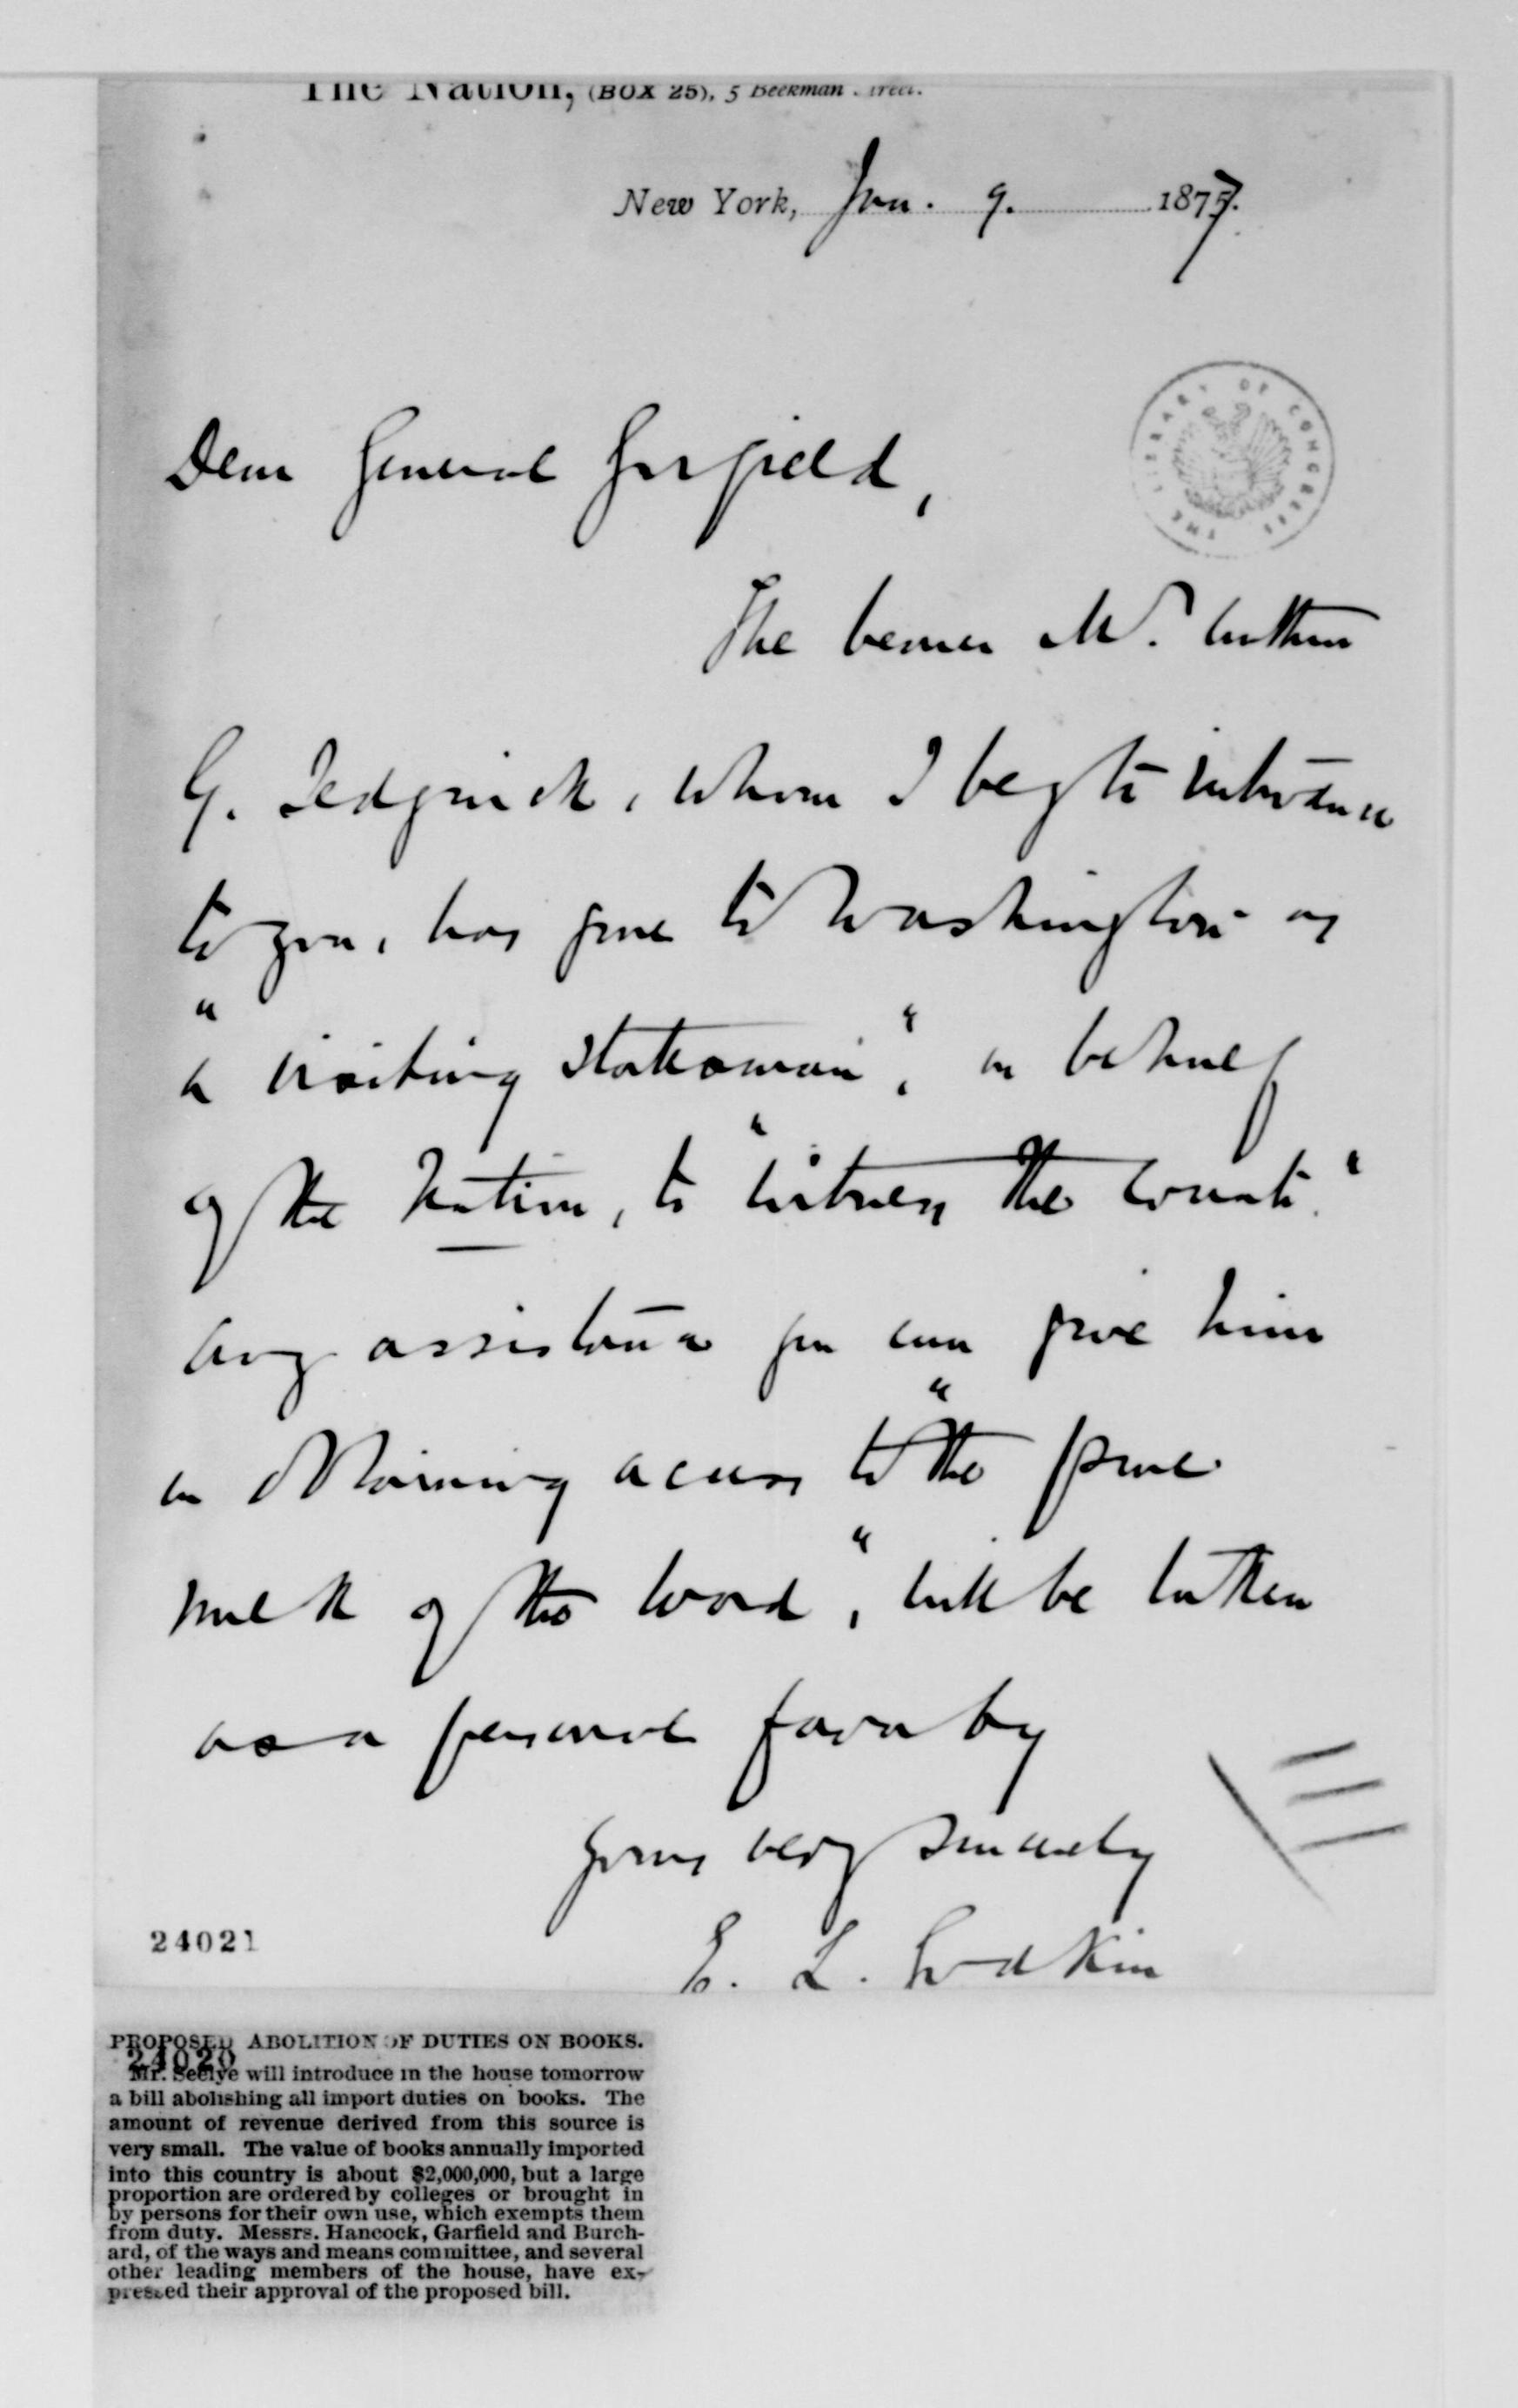 The Nation, (BOX 25), 5 Beekman Street.
New York, Jan. 9. 1877.
THE LIBRARY OF CONGRESS
Dear General Garfield,
The bearer Mr. Arthur
G. Sedgwick, whom I beg to introduce
to you, has gone to Washington as
"a visiting statesman", on behalf
of the Nation, to "witness the count."
Any assistance you can give him
in obtaining access to "the pure
milk of the word", will be taken
as a personal favor by
yours very sincerely
E. L. Godkin
24021
PROPOSED ABOLITION OF DUTIES ON BOOKS.
24020
Mr. Seelye will introduce in the house tomorrow
a bill abolishing all import duties on books. The
amount of revenue derived from this source is
very small. The value of books annually imported
into this country is about $2,000,000, but a large
proportion are ordered by colleges or brought in
by persons for their own use, which exempts them
from duty. Messrs. Hancock, Garfield and Burch-
ard, of the ways and means committee, and several
other leading members of the house, have ex-
pressed their approval of the proposed bill.